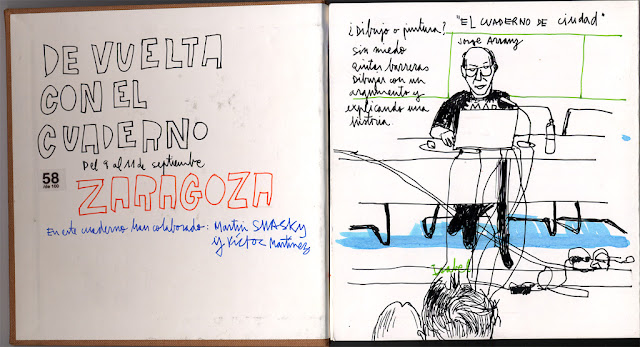 DE VUELTA
CON EL
CUADERNO
Del 9 al 11 de septiembre
58
ZARAGOZA
En este cuaderno han colaborado: Martín
y Víctor Martínez
¿Dibujo o pintura?
sin miedo
quitar barreras
Dibujar con un
argumento y
explicando una
historia.
"EL CUADERNO DE CIUDAD"
Jorge Arranz
MAR
Isabel